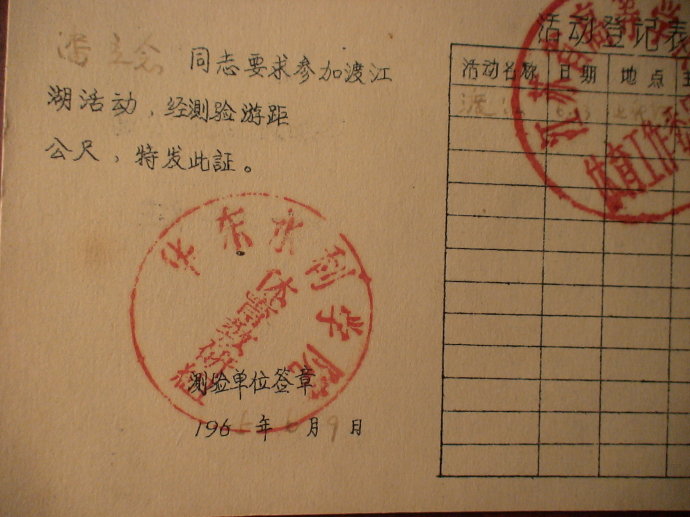 同志要求参加渡江
湖活动，经测验游距
公尺，特发此証。
华东水利学院
体育教研组
测验单位签章
1966年6月9日
活动登记表
活动名称 日期 地点
渡江
江苏省高等学
体育工作委员